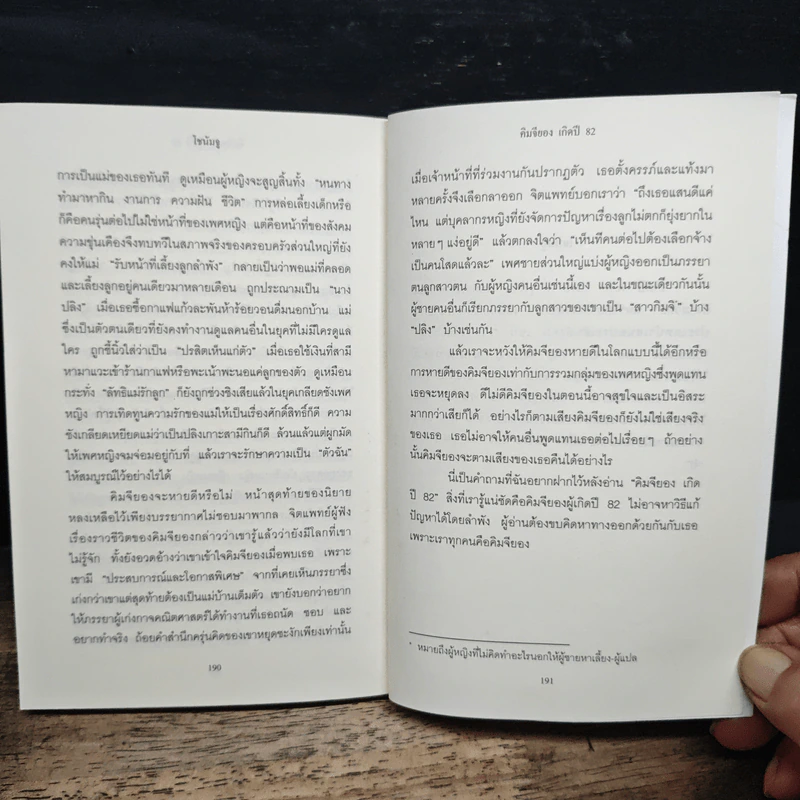 โชนัมจู
การเป็นแม่ของเธอทันที ดูเหมือนผู้หญิงจะสูญสิ้นทั้ง "หนทาง
ทำมาหากิน งานการ ความฝัน ชีวิต" การหล่อเลี้ยงเด็กหรือ
ก็คือคนรุ่นต่อไปไม่ใช่หน้าที่ของเพศหญิง แต่คือหน้าที่ของสังคม
ความขุ่นเคืองจึงทบทวีในสภาพจริงของครอบครัวส่วนใหญ่ที่ยัง
คงให้แม่ "รับหน้าที่เลี้ยงลูกลำพัง" กลายเป็นว่าพอแม่ที่คลอด
และเลี้ยงลูกอยู่คนเดียวมาหลายเดือน ถูกประณามเป็น "นาง
ปลิง" เมื่อเธอซื้อกาแฟแก้วละพันห้าร้อยวอนดื่มนอกบ้าน แม่
ซึ่งเป็นตัวตนเดียวที่ยังคงทำงานดูแลคนอื่นในยุคที่ไม่มีใครดูแล
ใคร ถูกชี้นิ้วใส่ว่าเป็น "ปรสิตเห็นแก่ตัว" เมื่อเธอใช้เงินที่สามี
หามาแวะเข้าร้านกาแฟหรือพะเน้าพะนอแค่ลูกของตัว ดูเหมือน
กระทั่ง "ลัทธิแม่รักลูก" ก็ยังถูกช่วงชิงเสียแล้วในยุคเกลียดชังเพศ
หญิง การเทิดทูนความรักของแม่ให้เป็นเรื่องศักดิ์สิทธิ์ก็ดี ความ
ชังเกลียดเหยียดแม่ว่าเป็นปลิงเกาะสามีกินก็ดี ล้วนแล้วแต่ผูกมัด
ให้เพศหญิงจมจ่อมอยู่กับที่ แล้วเราจะรักษาความเป็น "ตัวฉัน"
ให้สมบูรณ์ไว้อย่างไรได้
คิมจียองจะหายดีหรือไม่ หน้าสุดท้ายของนิยาย
หลงเหลือไว้เพียงบรรยากาศไม่ชอบมาพากล จิตแพทย์ผู้ฟัง
เรื่องราวชีวิตของคิมจียองกล่าวว่าเขารู้แล้วว่ายังมีโลกที่เขา
ไม่รู้จัก ทั้งยังอวดอ้างว่าเขาเข้าใจคิมจียองเมื่อพบเธอ เพราะ
เขามี "ประสบการณ์และโอกาสพิเศษ" จากที่เคยเห็นภรรยาซึ่ง
เก่งกว่าเขาแต่สุดท้ายต้องเป็นแม่บ้านเต็มตัว เขายังบอกว่าอยาก
ให้ภรรยาผู้เก่งกาจคณิตศาสตร์ได้ทำงานที่เธอถนัด ชอบ และ
อยากทำจริง ถ้อยคำสำนึกครุ่นคิดของเขาหยุดชะงักเพียงเท่านั้น
190
คิมจียอง เกิดปี 82
เมื่อเจ้าหน้าที่ที่ร่วมงานกันปรากฏตัว เธอตั้งครรภ์และแท้งมา
หลายครั้งจึงเลือกลาออก จิตแพทย์บอกเราว่า "ถึงเธอแสนดีแค่
ไหน แต่บุคลากรหญิงที่ยังจัดการปัญหาเรื่องลูกไม่ตกก็ยุ่งยากใน
หลายๆ แง่อยู่ดี" แล้วตกลงใจว่า "เห็นทีคนต่อไปต้องเลือกจ้าง
เป็นคนโสดแล้วละ" เพศชายส่วนใหญ่แบ่งผู้หญิงออกเป็นภรรยา
ตนลูกสาวตน กับผู้หญิงคนอื่นเช่นนี้เอง และในขณะเดียวกันนั้น
ผู้ชายคนอื่นก็เรียกภรรยากับลูกสาวของเขาเป็น "สาวกิมจิ*" บ้าง
"ปลิง" บ้างเช่นกัน
แล้วเราจะหวังให้คิมจียองหายดีในโลกแบบนี้ได้อีกหรือ
การหายดีของคิมจียองเท่ากับการรวมกลุ่มของเพศหญิงซึ่งพูดแทน
เธอจะหยุดลง ดีไม่ดีคิมจียองในตอนนี้อาจสุขใจและเป็นอิสระ
มากกว่าเสียก็ได้ อย่างไรก็ตามเสียงคิมจียองก็ยังไม่ใช่เสียงจริง
ของเธอ เธอไม่อาจให้คนอื่นพูดแทนเธอต่อไปเรื่อยๆ ถ้าอย่าง
นั้นคิมจียองจะตามเสียงของเธอคืนได้อย่างไร
นี่เป็นคำถามที่ฉันอยากฝากไว้หลังอ่าน "คิมจียอง เกิด
ปี 82" สิ่งที่เรารู้แน่ชัดคือคิมจียองผู้เกิดปี 82 ไม่อาจหาวิธีแก้
ปัญหาได้โดยลำพัง ผู้อ่านต้องขบคิดหาทางออกด้วยกันกับเธอ
เพราะเราทุกคนคือคิมจียอง
* หมายถึงผู้หญิงที่ไม่คิดทำอะไรนอกให้ผู้ชายหาเลี้ยง-ผู้แปล
191